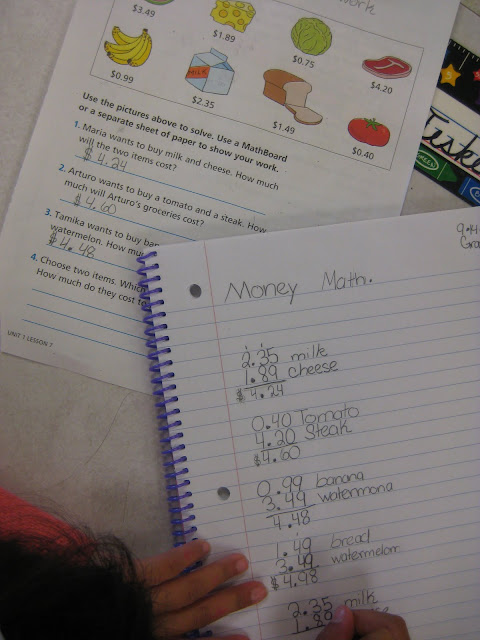 work
$3.49
$1.89
$0.75
$4.20
$0.99
MILK
$2.35
$1.49
$0.40
Use the pictures above to solve. Use a MathBoard
or a separate sheet of paper to show your work.
1. Maria wants to buy milk and cheese. How much
will the two items cost?
$4.24
2. Arturo wants to buy a tomato and a steak. How
much will Arturo's groceries cost?
$4.60
3. Tamika wants to buy
watermelon. How
$4.48
4. Choose two items.
How much do they cost
UNIT 1 LESSON 7
Money Math.
2.35 milk
1.89 cheese
$4.24
0.40 Tomato
4.20 Steak
$4.60
0.99 banana
3.49 watermona
4.48
1.49 bread
3.49 watermelon
$4.98
2.35 milk
1.89